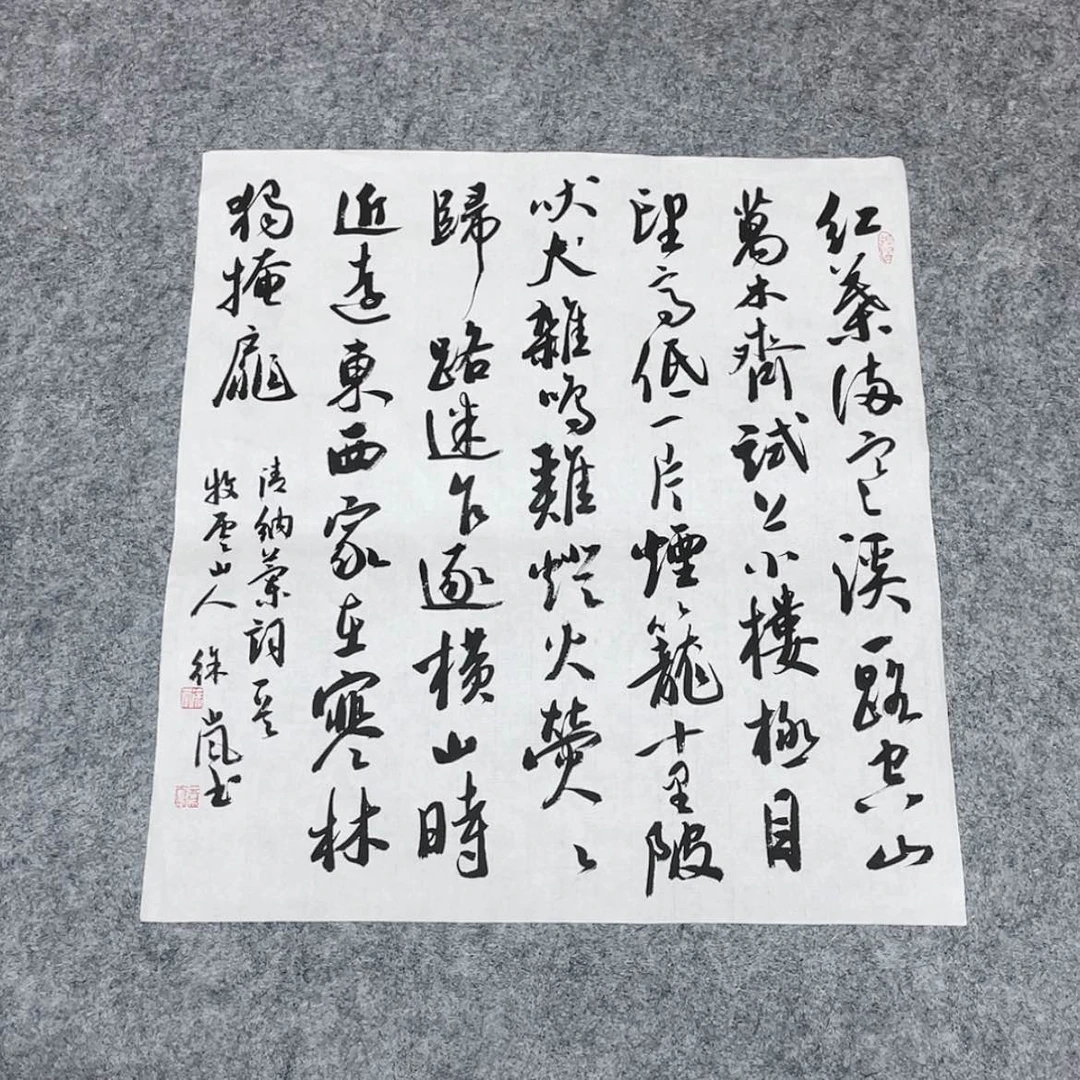 紅葉満寒溪一路空山
萬木齊試上小樓極目
望高低一片煙籠十里陂
吠犬雜鳴雞燈火熒々
歸路迷乍逐横山時
近遠東西家在寒林
獨掩扉
清納蘭詞
牧雲山人徐嵐書